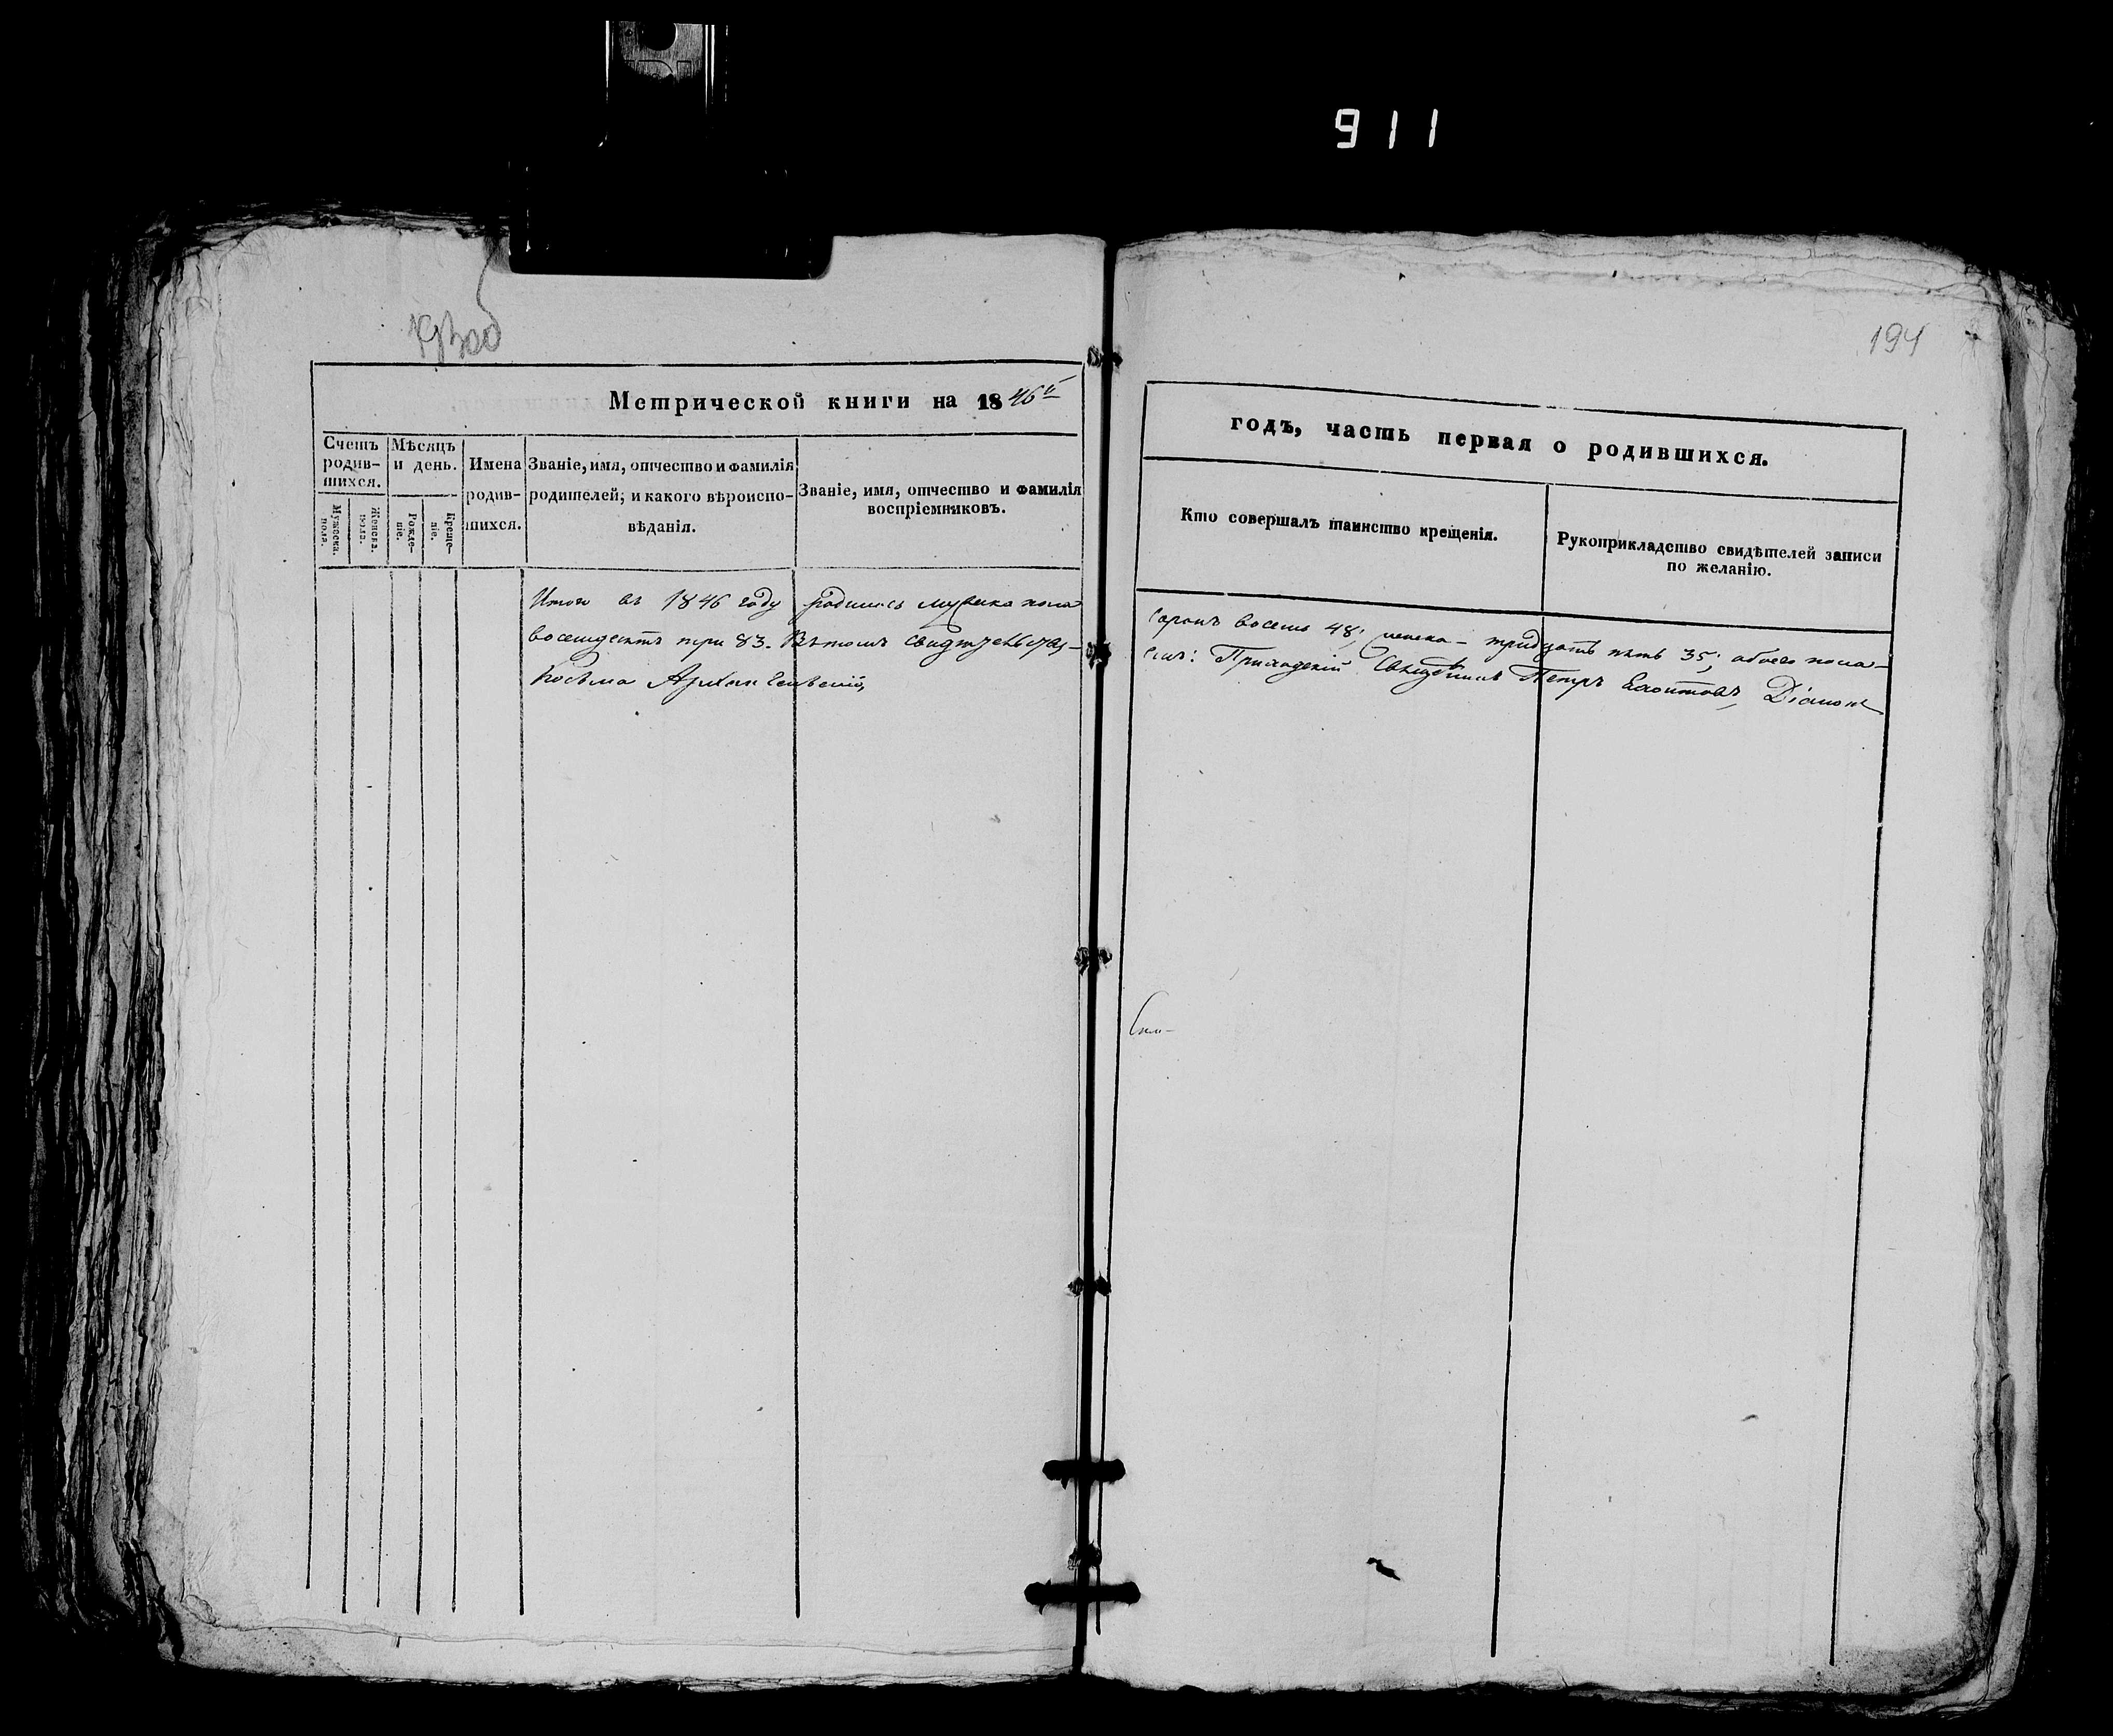 911
194
Метрической книги на 1846й
годъ, часть первая о родившихся.
Счетъ родив-шихся.
Мужеска. пола.
Женска. пола.
Мѣсяцъ и день.
Рожде-ніе.
Креще-ніе.
Имена родив-шихся.
Званіе, имя, отчество и фамилія
родителей; и какого вѣроиспо-
вѣданія.
Званіе, имя, отчество и фамилія
воспріемниковъ.
Кто совершалъ таинство крещенія.
Рукоприкладство свидѣтелей записи
по желанію.
Итого въ 1846 году родилось мужска пола
сорокъ восемь 48; женска – тридцать пять 35; обоего пола –
восемдесятъ три 83. Въ томъ
Приходскій Священникъ Петръ Діаконъ
Косьма